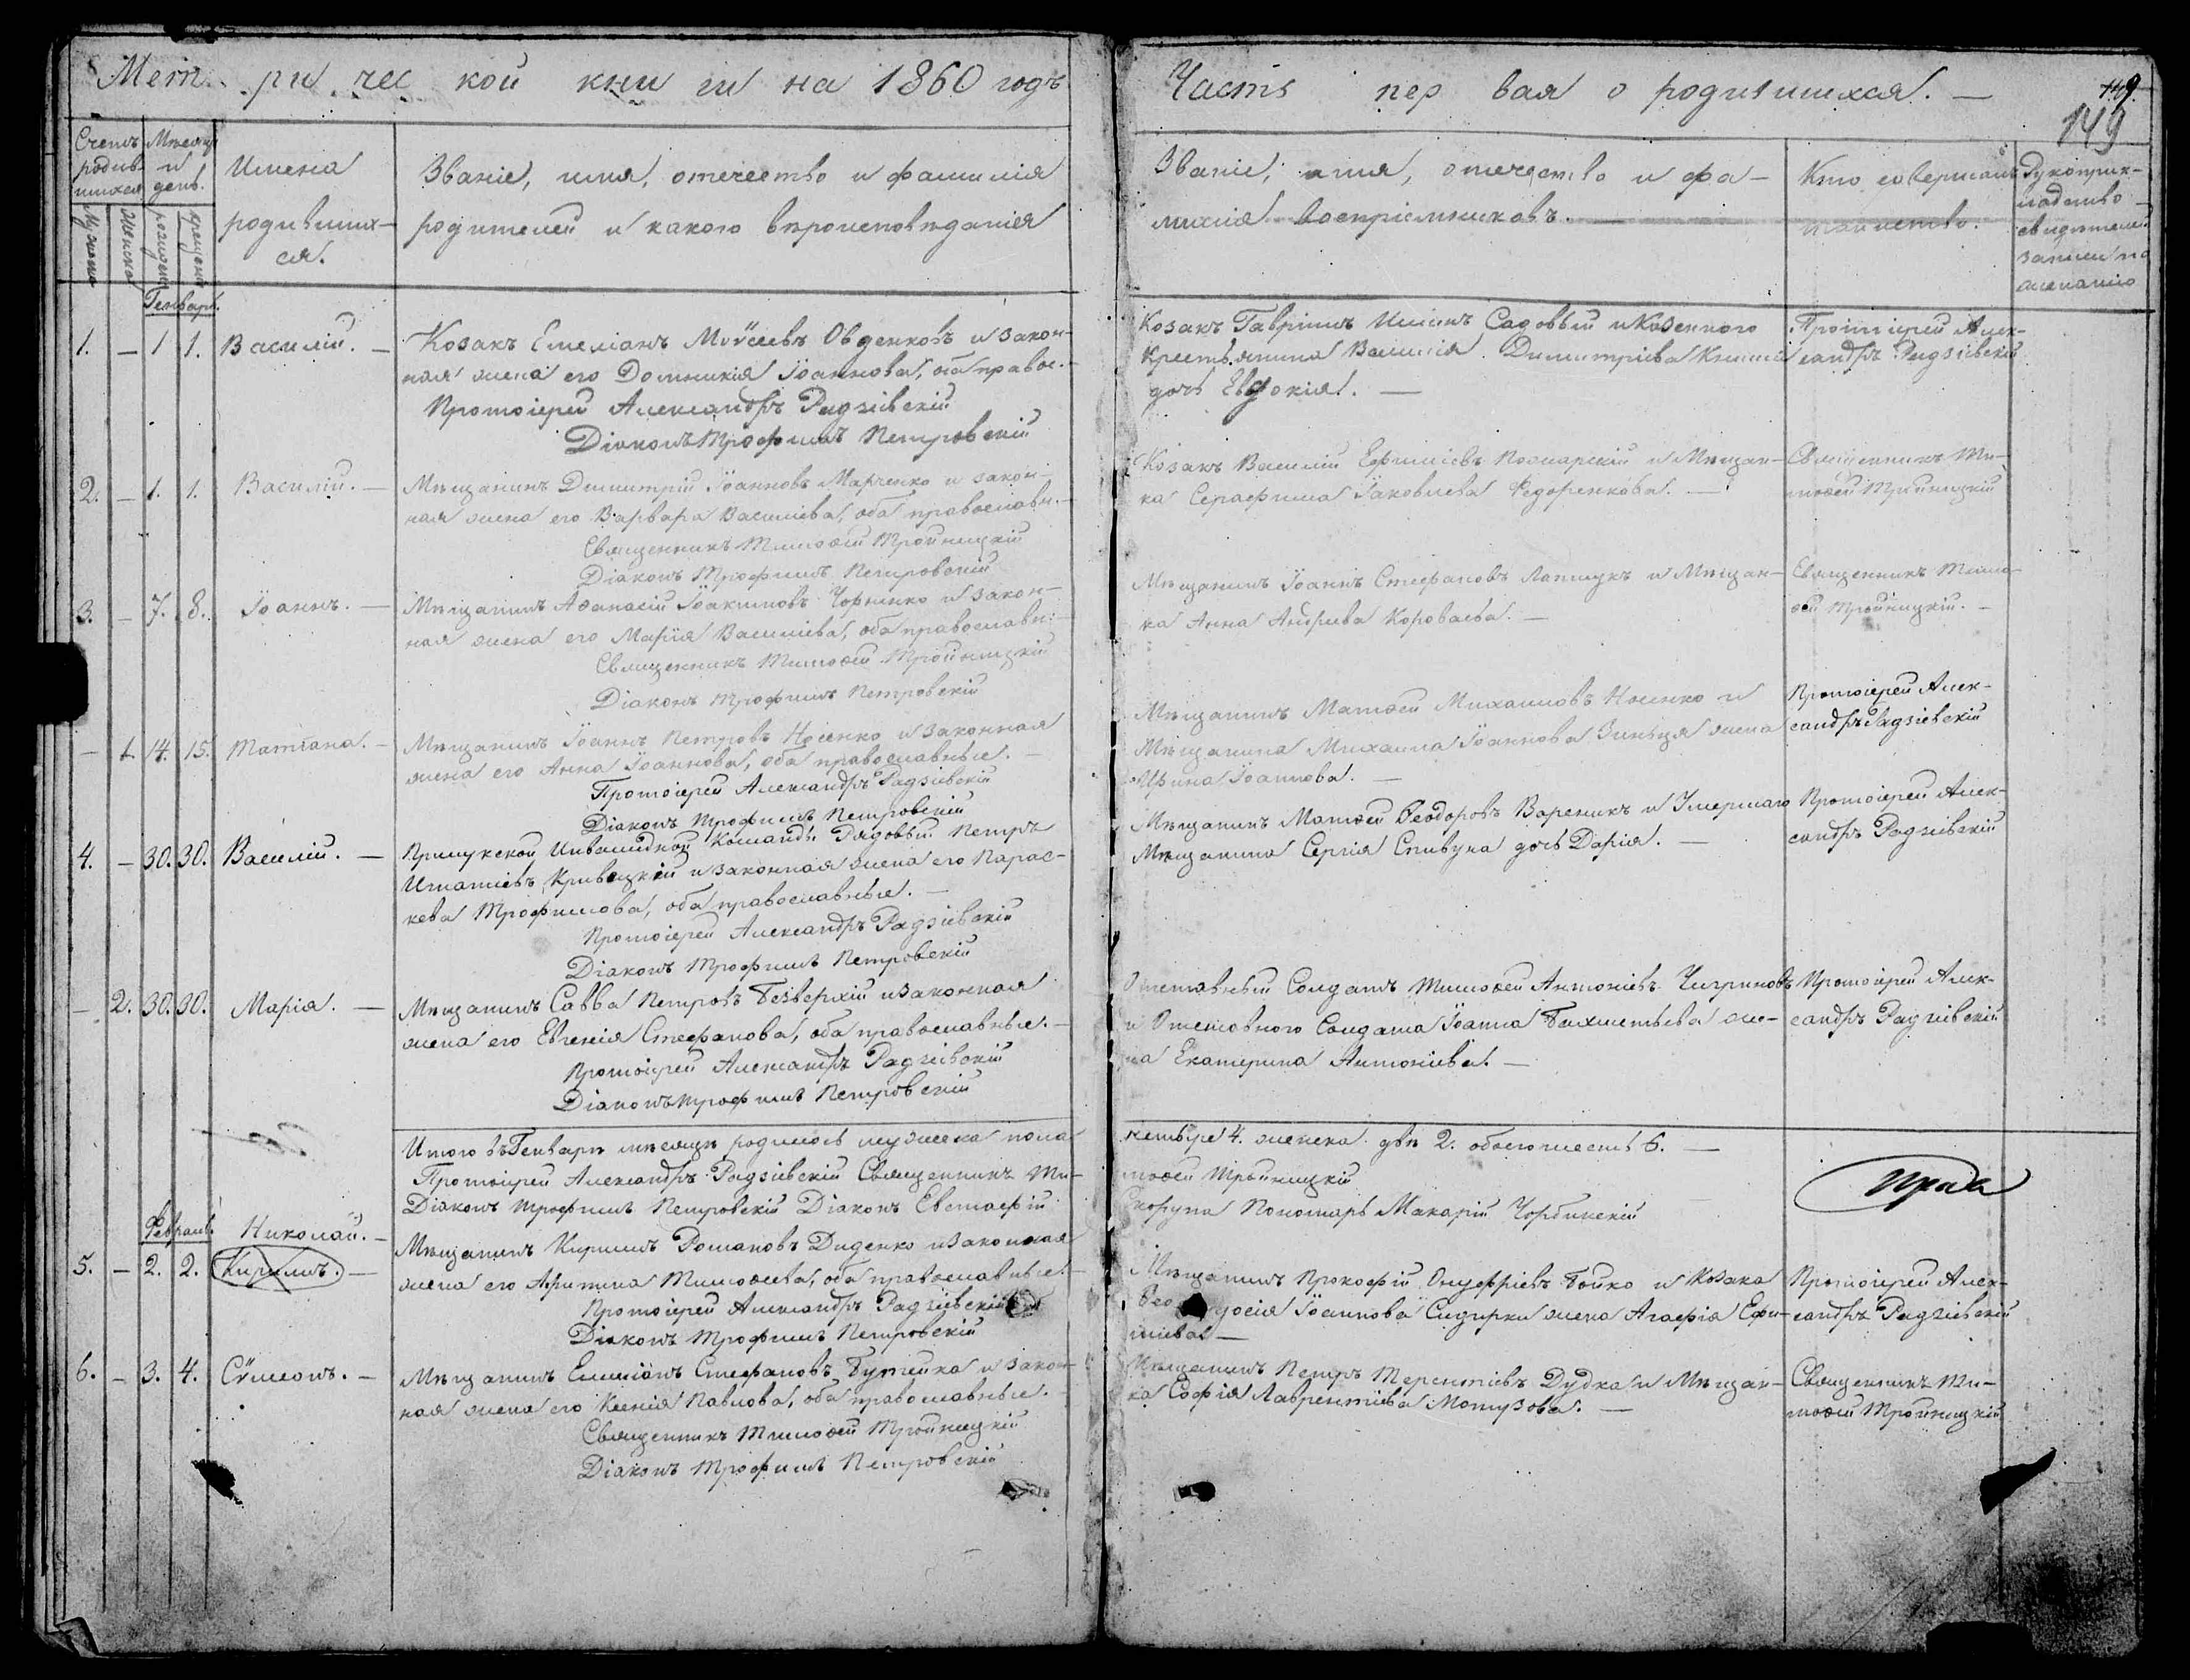 Метрической книги на 1860 годъ
Часть первая о родившихся. —
149
Счетъ родив-шихся
Мѣсяцъ и день.
Имена родивших-ся.
Званіе, имя, отечество и фамилія
родителей и какого вѣроисповѣданія
Званіе, имя, отечество и фа-
милія воспріемниковъ. —
Кто совершалъ
таинство.
Рукоприк-
ладство
свидетелей
записи по
желанію
Мужеска
Женска
рожденія
крещенія
Генварь.
1. — 1 1. Василій. —
Козакъ Емеліанъ Моѵсеевъ Овденковъ и закон-
ная жена его Домникія Іоаннова, оба правос.-
Протоіерей Александръ Радзіевскій
Діаконъ Трофимъ Петровскій
Козакъ Гавріилъ Садовый и Козенного
Крестьянина Василія Димитріева
дочь Евдокія. —
Протоіерей Алек-
сандръ Радзіевскій
2. — 1. 1. Василій. —
Мѣщанинъ Димитрій Іоанновъ Марченко и закон-
ная жена его Варвара Василіева, оба православн.-
Священникъ Тимоѳей Тройницкій
Діаконъ Трофимъ Петровскій
Козакъ Василій Ефиміевъ Пожарскій и Мѣщан-
ка Серафима Іаковлева Федоренкова. —
Священникъ Ти-
моѳей Тройницкій
3. — 7. 8. Іоаннъ. —
Мѣщанинъ Аѳанасій Іоакимовъ Чорненко и закон-
ная жена его Марія Василіева, оба православн: —
Священникъ Тимоѳей Тройницкій
Діаконъ Трофимъ Петровскій
Мѣщанинъ Іоаннъ Стефановъ Лапшукъ и Мѣщан-
ка Анна Андреева Короваева. —
Священникъ Тимо-
ѳей Тройницкій. —
— 1. 14. 15. Татіана. —
Мѣщанинъ Іоаннъ Петровъ Носенко и законная
жена его Анна Іоаннова, оба православные. —
Протоіерей Александръ Радзіевскій
Діаконъ Трофимъ Петровскій
Мѣщанинъ Матѳей Михаиловъ Носенко и
Мѣщанина Михаила Іоаннова Зинця жена
Ирина Іоаннова. —
Протоіерей Алек-
сандръ Радзіевскій
4. — 30. 30. Василій. —
Прилукской Инвалидной Команды Рядовый Петръ
Игнатіевъ Кривецкій и законная жена его Парас-
кева Трофимова, оба православные. —
Протоіерей Александръ Радзіевскій
Діаконъ Трофимъ Петровскій
Мѣщанинъ Матѳей Ѳеодоровъ Вареникъ и Умершаго
Мѣщанина Сергія Спивука дочь Дарія. —
Протоіерей Алек-
сандръ Радзіевскій
— 2. 30. 30. Марія. —
Мѣщанинъ Савва Петровъ Безверхій и законная
жена его Евгенія Стефанова, оба православные. —
Протоіерей Александръ Радзіевскій
Діаконъ Трофимъ Петровскій
Отставный Солдатъ Тимоѳей Антоніевъ Чигриновъ
и Отставного Солдата Іоанна Бахметьева же-
на Екатерина Антоніева. —
Протоіерей Алек-
сандръ Радзіевскій
Итого въ Генварѣ мѣсяцѣ родилось мужеска пола
четыре 4. женска двѣ 2. обоего шесть 6. —
Протоіерей Александръ Радзіевскій Священникъ Ти-
моѳей Тройницкій
Діаконъ Трофимъ Петровскій Діаконъ Евстафій
Скорупа Пономарь Макарій Чорбинскій
Февраль.
5. — 2. 2. Николай. —
Кириллъ. —
Мѣщанинъ Кириллъ Романовъ Диденко и законная
жена его Ирина Тимоѳеева, оба православные. —
Протоіерей Александръ Радзіевскій
Діаконъ Трофимъ Петровскій
Мѣщанинъ Прокофій Онуфріевъ Бойко и Козака
Ѳеодосія Іоаннова Сидорки жена Агафія Ефи-
міева —
Протоіерей Алек-
сандръ Радзіевскій
6. — 3. 4. Сѵмеонъ. —
Мѣщанинъ Емиліанъ Стефановъ Бутейка и закон-
ная жена его Ксенія Павлова, оба православные. —
Священникъ Тимоѳей Тройницкій
Діаконъ Трофимъ Петровскій
Мѣщанинъ Петръ Терентіевъ Дудка и Мѣщан-
ка Софія Лаврентіева Мотузова. —
Священникъ Ти-
моѳей Тройницкій